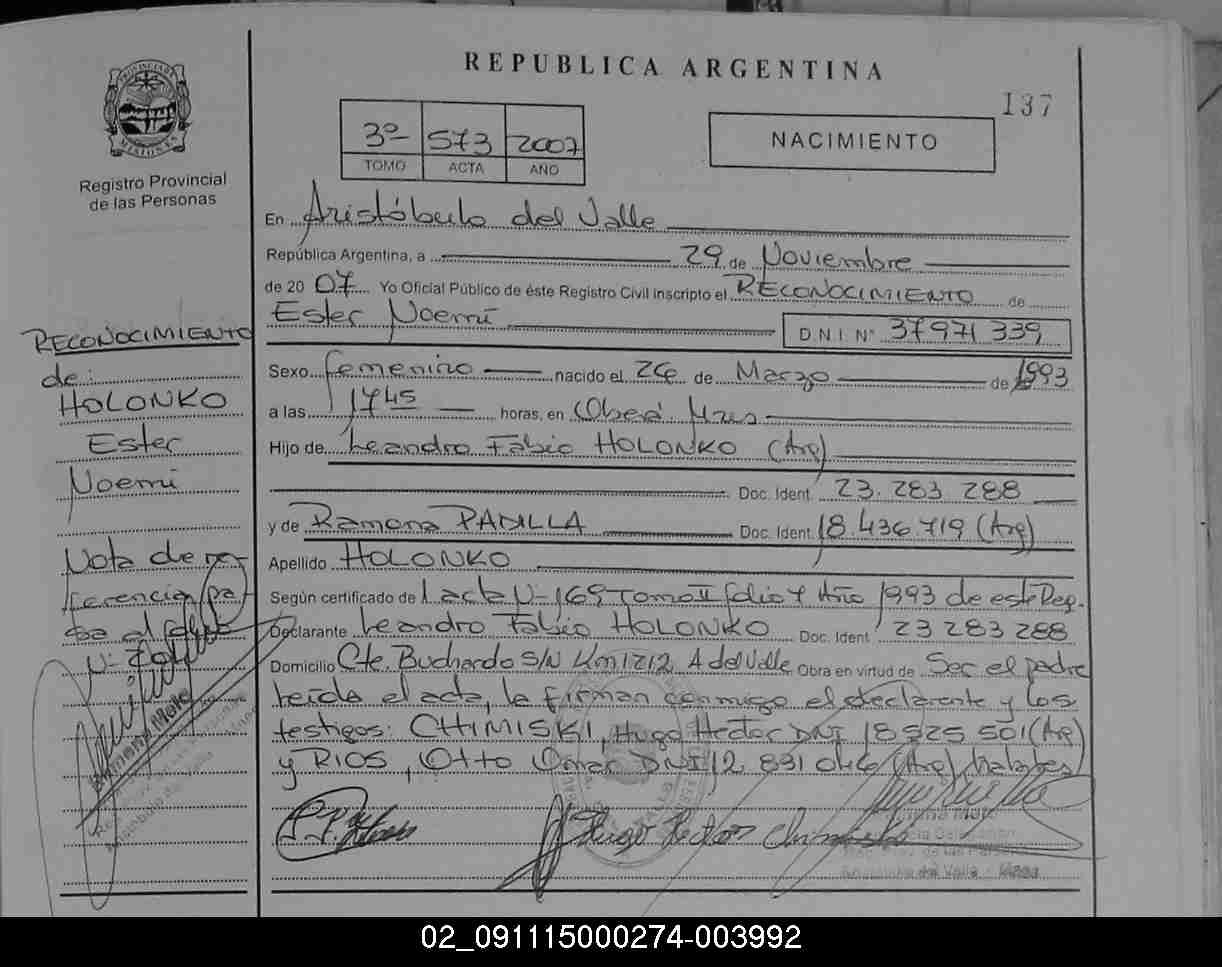 REPUBLICA ARGENTINA
137
PROVINCIA DE MISIONES
Registro Provincial
de las Personas
3º 573 2007
TOMO ACTA AÑO
NACIMIENTO
En Aristóbulo del Valle
República Argentina, a 29 de Noviembre
de 20 07 Yo Oficial Público de éste Registro Civil inscripto el RECONOCIMIENTO de
Ester Noemí D.N.I. N° 37 971 339
Sexo femenino nacido el 26 de Marzo de 1993
a las 1745 horas, en Oberá Mnes
Hijo de Leandro Fabio HOLONKO (Arg)
Doc. Ident. 23.283 288
y de Ramona PADILLA Doc. Ident. 18.436.719 (Arg)
Apellido HOLONKO
Según certificado de 1 acta Nº 169 Tomo II folio 4 Año 1993 de este Reg.
Declarante Leandro Fabio HOLONKO Doc. Ident 23 283 288
Domicilio Cte. Buchardo S/N Km 1212 A del Valle Obra en virtud de Ser el padre
leída el acta, la firman conmigo el declarante y los
testigos: CHIMISKI, Hugo Hector DNI 18 525 501 (Arg)
y RIOS, Otto Omar DNI 12 831 046 (Arg)
Hugo Hector Chimiski
RECONOCIMIENTO
de:
HOLONKO
Ester
Noemí
Nota de re-
ferencia pa-
sa al folio
02_091115000274-003992